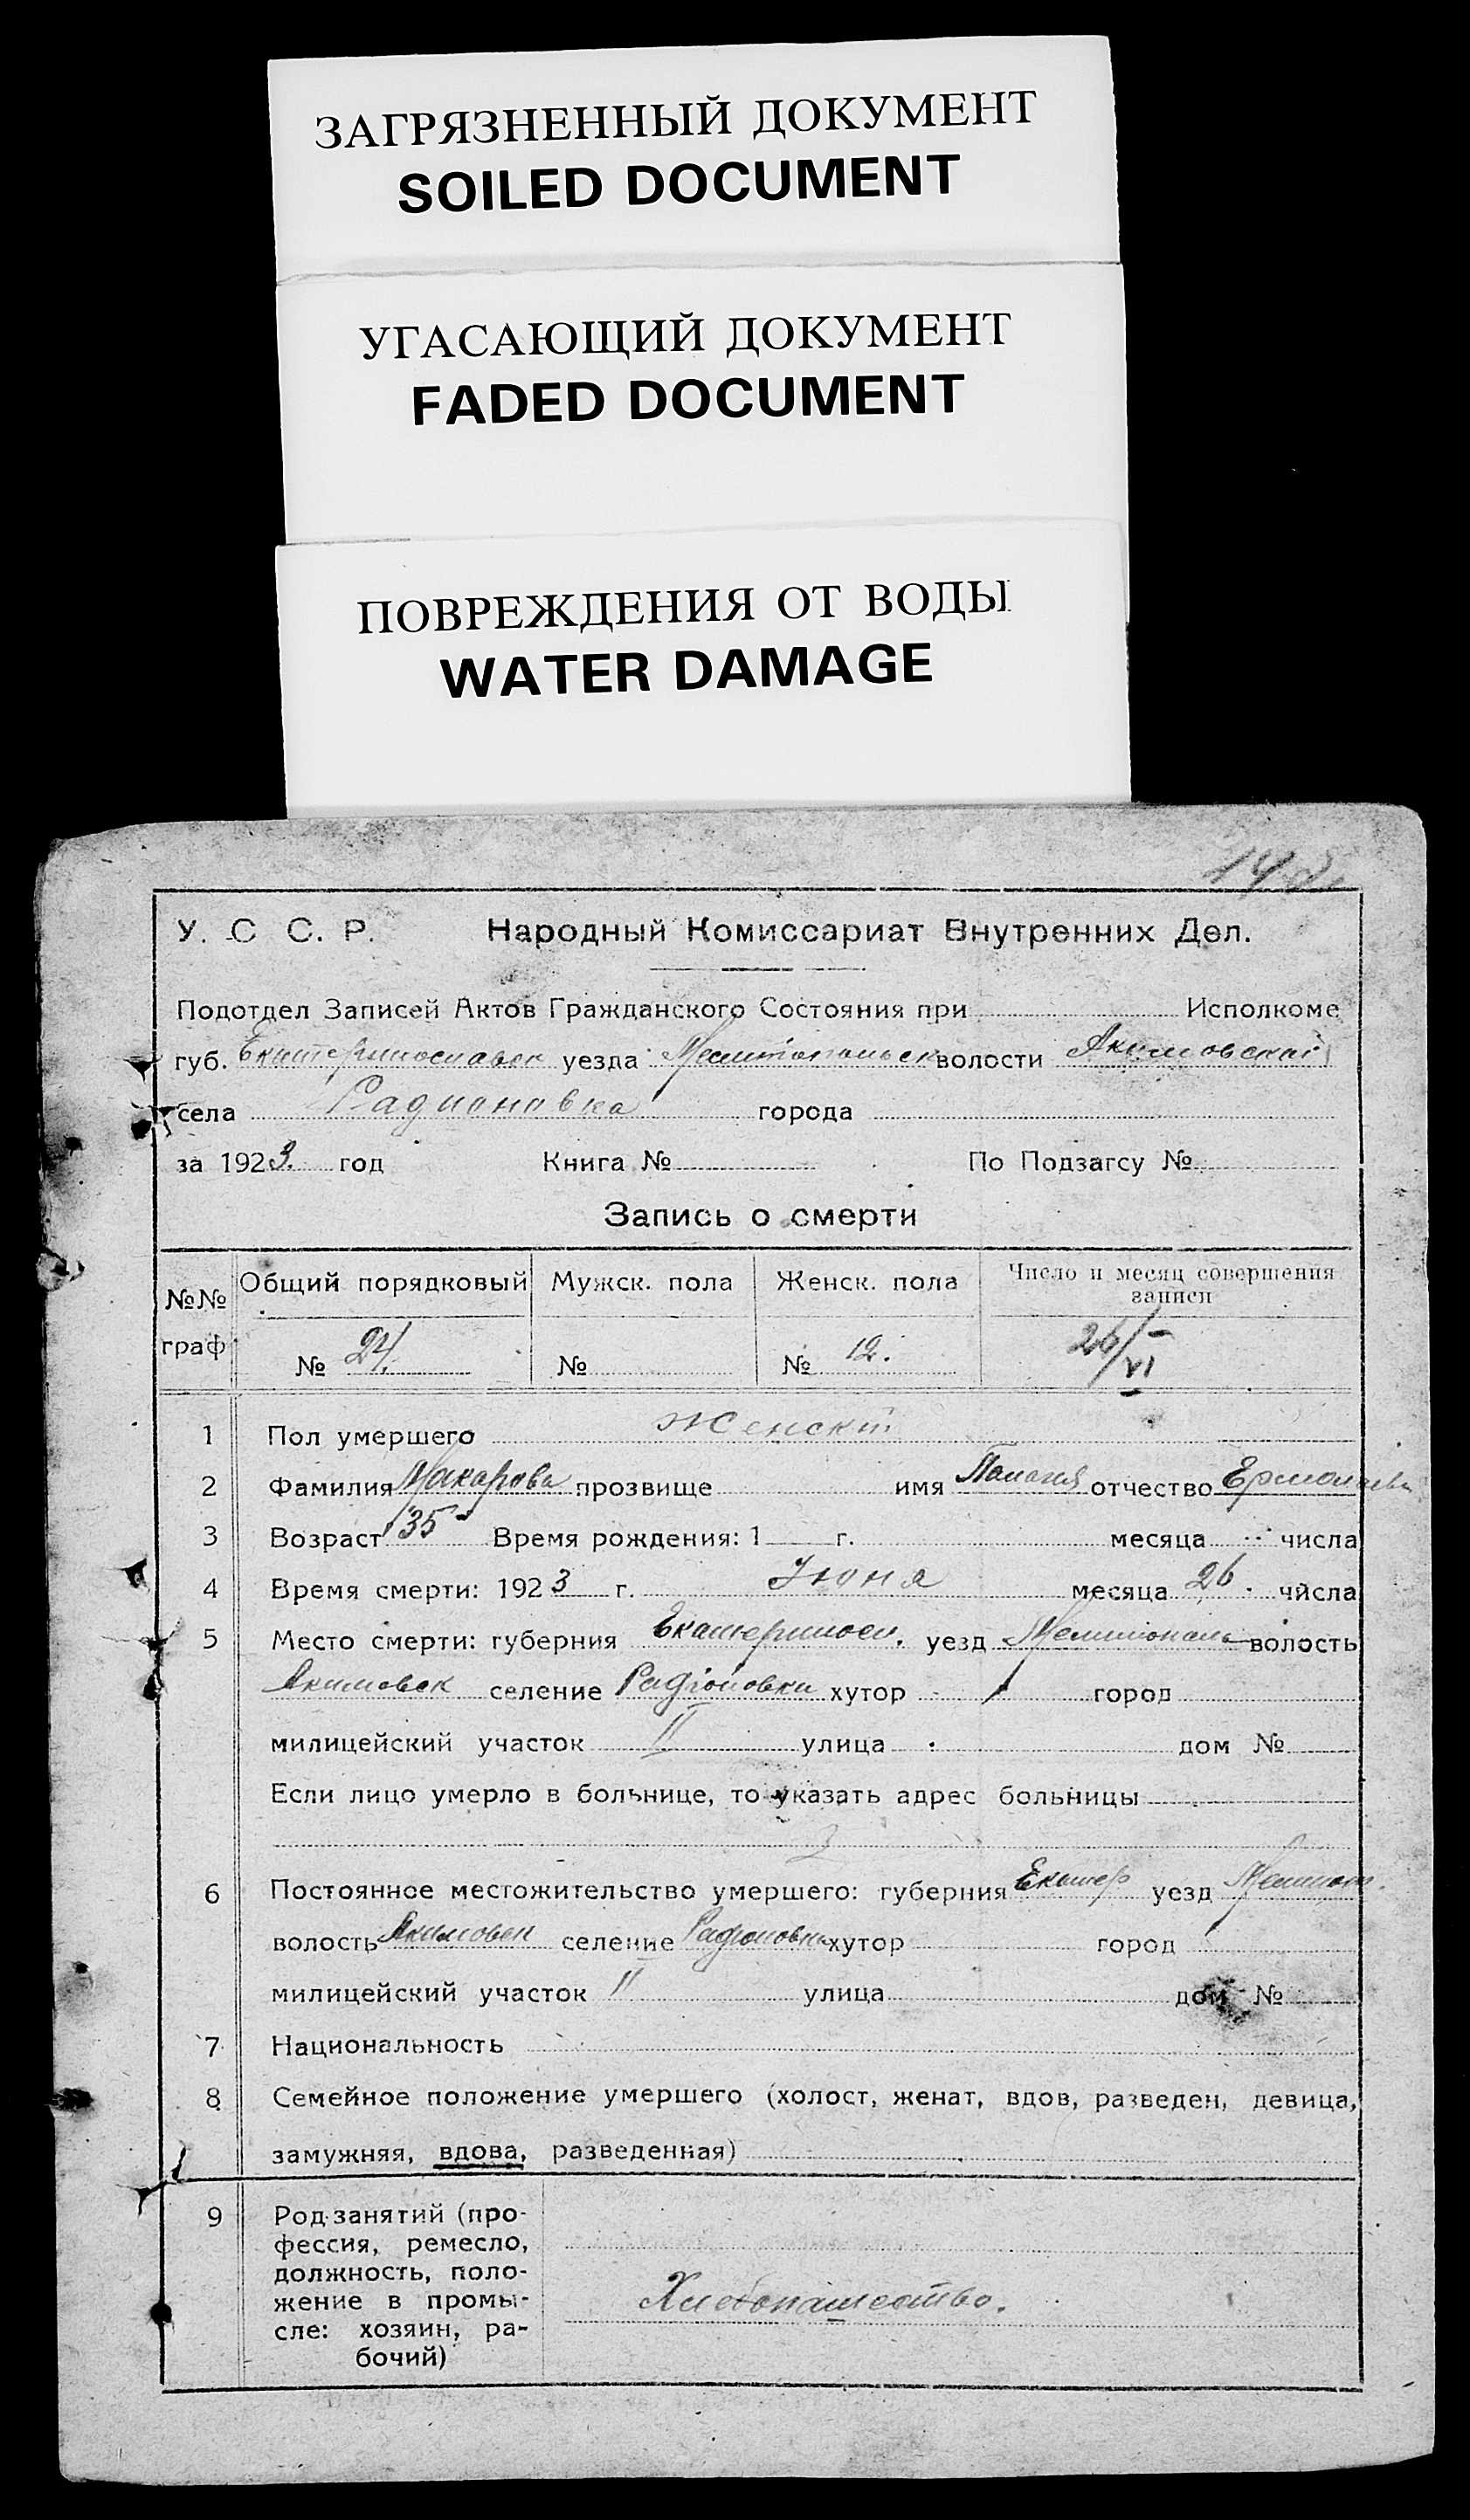 ЗАГРЯЗНЕННЫЙ ДОКУМЕНТ
SOILED DOCUMENT
УГАСАЮЩИЙ ДОКУМЕНТ
FADED DOCUMENT
ПОВРЕЖДЕНИЯ ОТ ВОДЫ
WATER DAMAGE
У. С С. Р. Народный Комиссариат Внутренних Дел.
Подотдел Записей Актов Гражданского Состояния при Исполкоме
губ. Екатеринославск уезда Мелитопольск волости Акимовской
села Радионовка города
за 1923. год Книга № По Подзагсу №
Запись о смерти
№№ граф Общий порядковый Мужск. пола Женск. пола Число и месяц совершения записи
№ 24. № № 12. 26/VI
1 Пол умершего Женск
2 Фамилия Макарова прозвище имя Палагия отчество Ермолаевн
3 Возраст 35 Время рождения: 1 г. месяца числа
4 Время смерти: 1923 г. Июня месяца 26. числа
5 Место смерти: губерния Екатеринос. уезд Мелитополь волость
Акимовск селение Радіоновка хутор город
милицейский участок II улица дом №
Если лицо умерло в больнице, то указать адрес больницы
6 Постоянное местожительство умершего: губерния Екатер уезд Мелитоп.
волость Акимовск селение Радіоновка хутор город
милицейский участок II улица дом №
7 Национальность
8 Семейное положение умершего (холост, женат, вдов, разведен, девица,
замужняя, вдова, разведенная)
9 Род занятий (про-
фессия, ремесло,
должность, поло-
жение в промы-
сле: хозяин, ра-
бочий)
Хлебопашество.